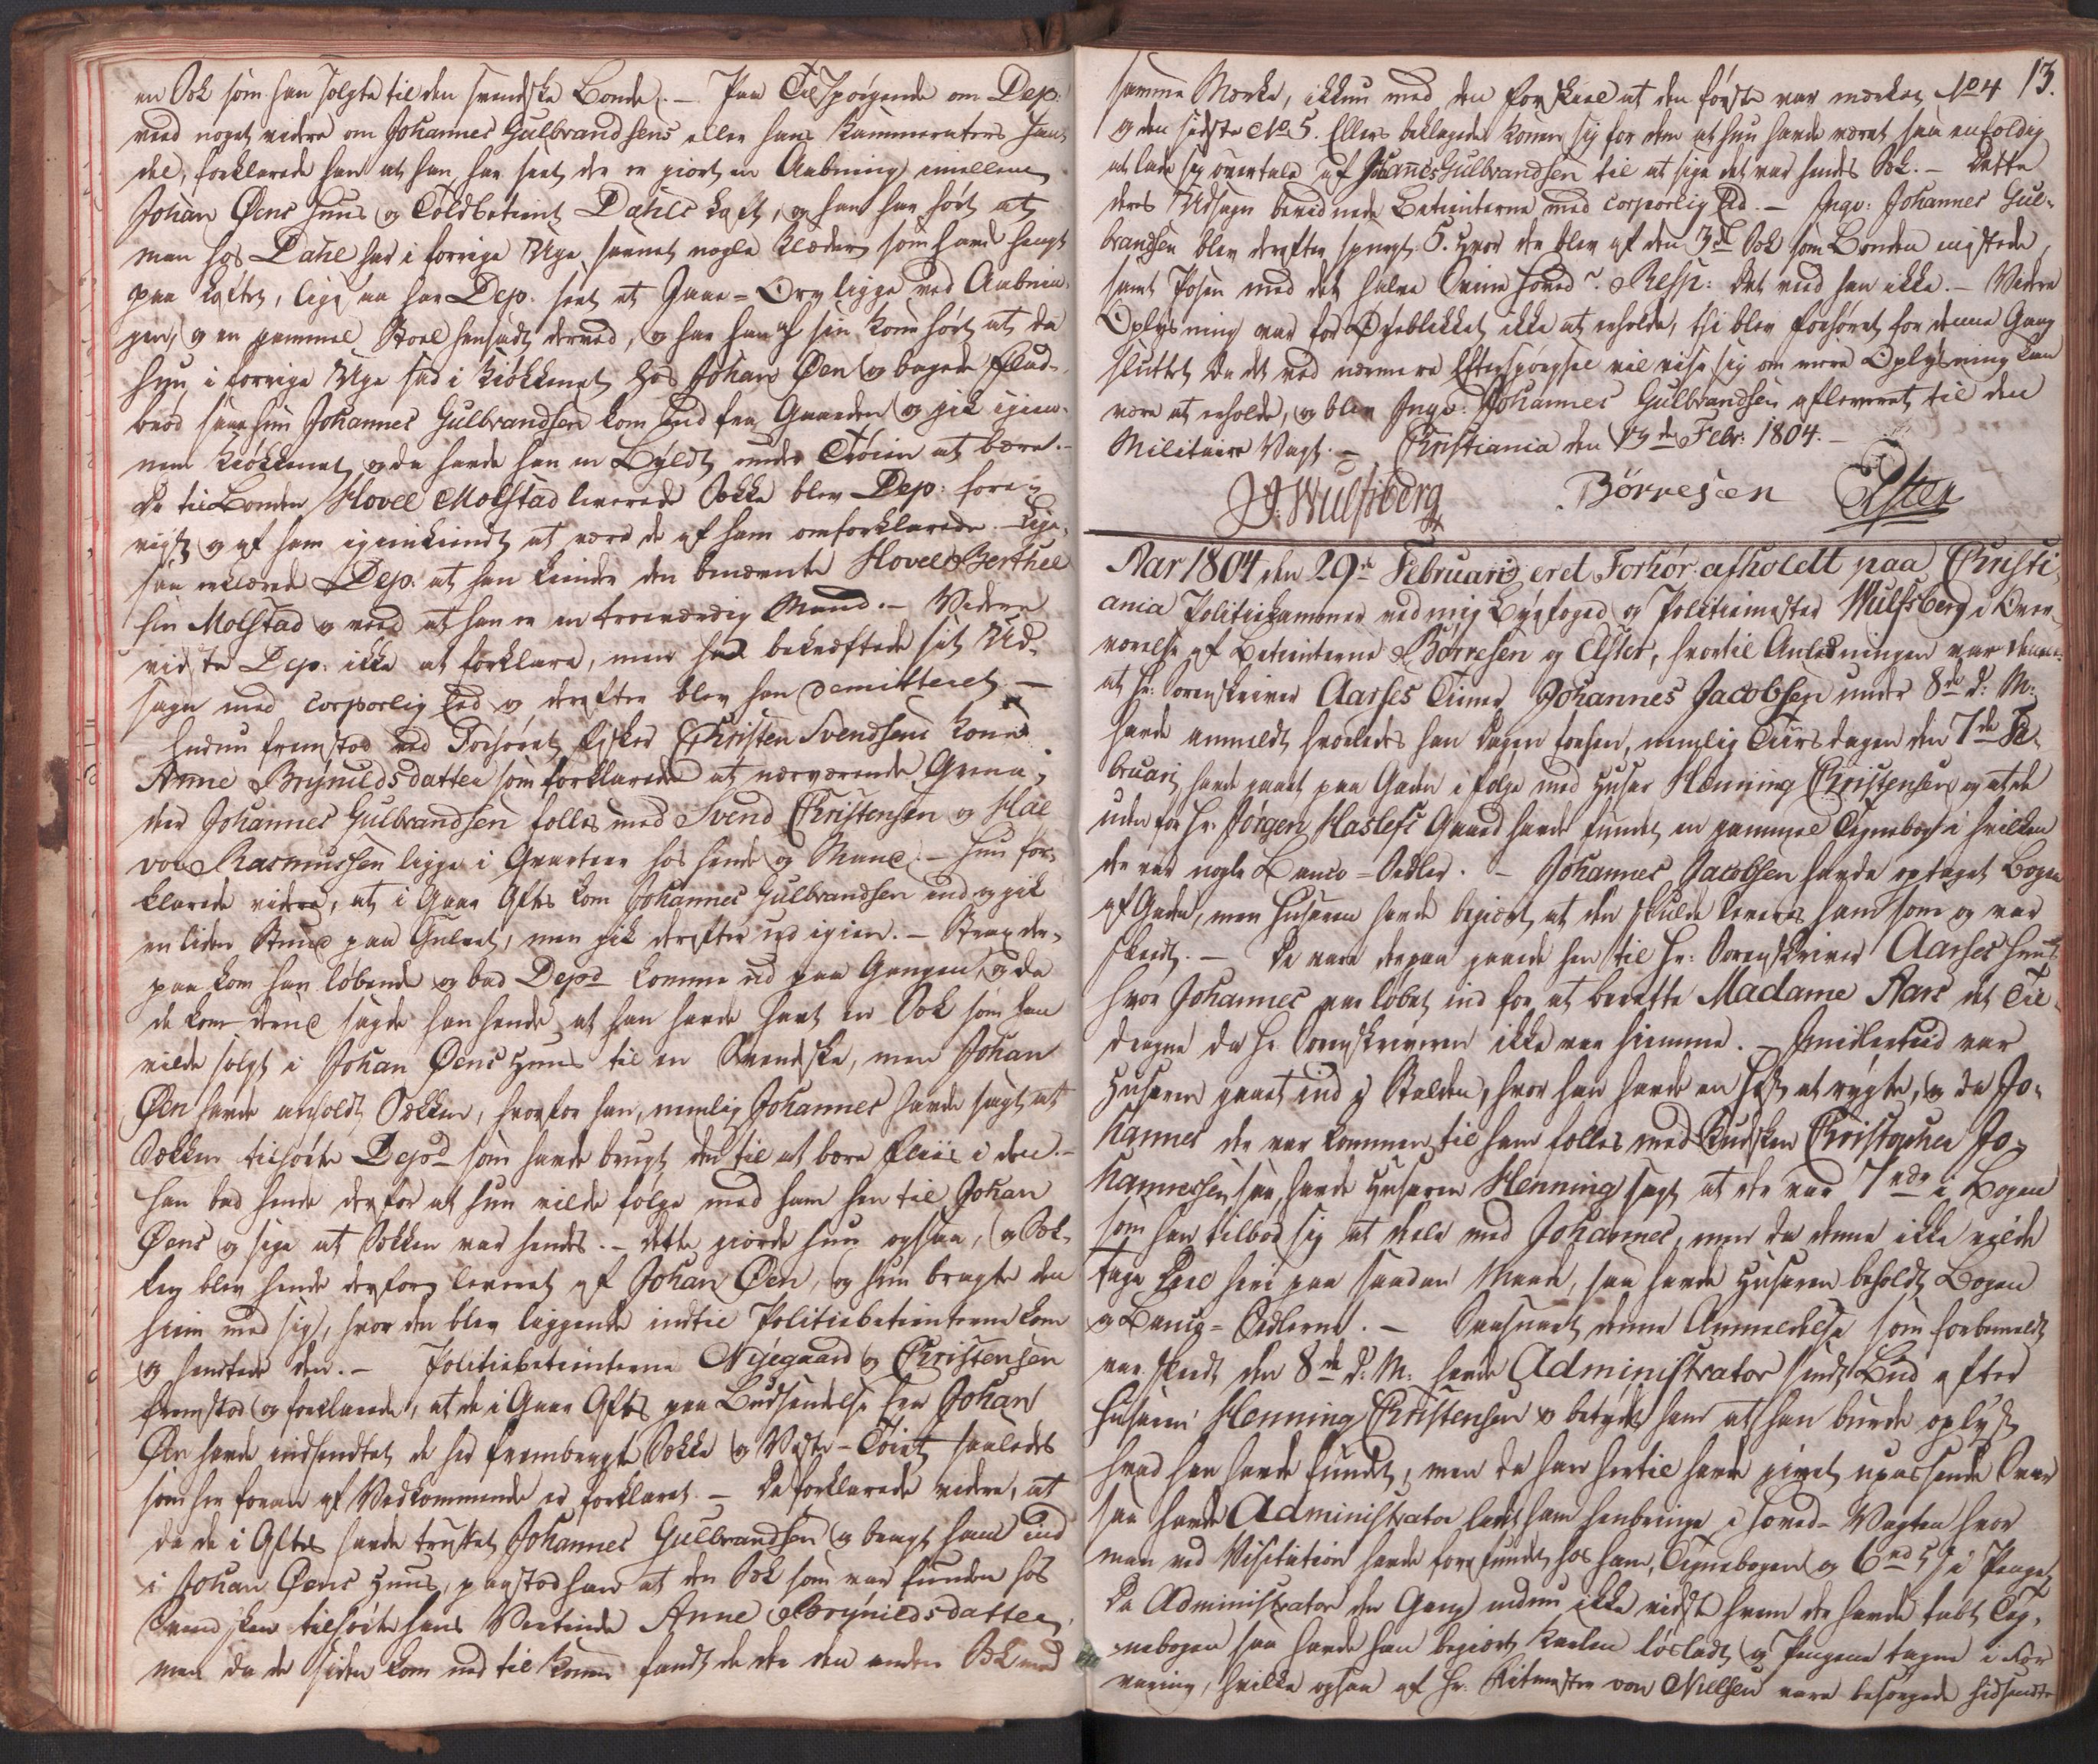 en Sæk som han solgte til den svendske Bonde. – Paa Tilspørgende om Dep:
veed noget videre om Johannes Gulbrandsens eller hans Kammeraters Han-
del, forklarede han at han har seet der er giort en Aabning imellem
Johan Øens Huus og Toldbetient Dahls Loft, og han har hørt at
man hos Dahl har i forrige Uge savnet nogle Klæder som havde hengt
paa Loftet, lige saa har Dep. seet at Jaae-Ory ligge ved Aabnin-
gen, og en gammel Stoel hensadt derved, og har han af sin Kone hørt at da
hun i forrige Uge sad i Kiøkkenet hos Johan Øen og bagede Flad-
brød saae hun Johannes Gulbrandsen kom ind fra Gaarden og gik igien-
nem Kiøkkenet og da havde han en Byldt under Trøien at bære. –
De til Bonden Hovel Molstad leverede Sække blev Dep: fore-
viist og af ham igienkiendt at være de af ham omforklarede. Lige-
saa erklærede Dep: at han kiender den benævnte Hovel Berthel
sen Molstad og veed at han er en troeværdig Mand. – Videre
vidste Dep: ikke at forklare, men han bekræftede sit Ud-
sagn med corporlig Eed og derefter blev han demitteret –
Endnu fremstod ved Forhøret Fisker Christen Svendsens Kone
Anne Brynildsdatter som forklarede at nærværende Grena-
der Johannes Gulbrandsen følles med Svend Christensen og Hal
vor Rasmussen ligge i Qvarteer hos hende og Mand. – Hun for-
klarede videre, at i Gaar Aftes kom Johannes Gulbrandsen ind og gik
en liden Stund paa Gulvet, men gik derefter ud igien. – Strax der-
paa kom han løbende og bad Depd komme ud paa Gangen, og da
de kom derud sagde han hende at han havde havt en Sæk som han
vilde solgt i Johan Øens Huus til en Svendske, men Johan
Øen havde anholdt Sækken, hvorfor han, nemlig Johannes havde sagt at
Sækken tilhørte Depd som havde brugt den til at bære Fliis i den. –
Han bad hende derfor at hun vilde følge med ham hen til Johan
Øens og sige at Sækken var hendes. – Dette giorde hun ogsaa, og Sæk-
ken blev hende derfor leveret af Johan Øen, og hun bragte den
hiem med sig, hvor den blev liggende indtil Politiebetienterne kom
og hendtede den. – Politiebetienterne Nyegaard og Christensen
fremstod og forklarede, at de i Gaar Aftes paa Budsendelse fra Johan
Øen havde indhendtet de her frembragte Sække og Vaske-Tøiet saaledes
som her foran af Vedkommende er forklaret. – De forklarede videre, at
da de i Aftes havde truffet Johannes Gulbrandsen og bragt ham ind
i Johan Øens Huus, paastod han at den Sæk som var funden hos
Svendsken tilhørte hans Vertinde Anne Brynildsdatter,
men da de siden kom ned til Konen fandt de der den anden Sæk med
13.
samme Mærke, ikkun med den Forskiel at den første var mærket No 4
og den sidste No 5. Ellers beklagede Konen sig for dem at hun havde været saa enfoldig
at lade sig overtale af Johannes Gulbrandsen til at sige det var hendes Sæk. – Dette
deres Udsagn beeednede Betienterne med corporlig Eed. – Inqv: Johannes Gul-
brandsen blev derefter spurgt: 5. Hvor der blev af den 3de Sæk som Bonden mistede,
samt Posen med det halve Sviine Hoved? Resp: det veed han ikke. – Videre
Oplysning var for Øyeblikket ikke at erholde, thi blev Forhøret for denne Gang
sluttet da det ved nærmere Efterspørgsel vil vise sig om mere Oplysning kan
være at erholde, og blev Inqv: Johannes Gulbrandsen afleveret til den
Militaire Vagt. – Christiania den 13de Febr: 1804. –
J. Wulfsberg Børresen Aster
Aar 1804 den 29de Februarii er et Forhør afholdt paa Christi-
ania Politiekammer ved mig Byefoged og Politiemester Wulfsberg i Over-
værelse af Betienterne Børresen og Aster, hvortil Anledningen var denne:
at Hr. Sorenskriver Aarses Tiener Johannes Jacobsen under 8de d: M:
havde anmeldt hvorledes han Dagen forhen, nemlig Tiirsdagen den 7de Fe-
bruarii havde gaaet paa Gaden ifølge med Husar Henning Christensen og at de
uden for Hr. Jørgen Haslefs Gaard havde fundet en gammel Tegnebog i hvilken
der var nogle Banco-Sedler. – Johannes Jacobsen havde optaget Bogen
af Gaden, men Husaren havde begiert at den skulde leveres ham som og var
skeedt. – De vare derpaa gaaede hen til Hr: Sorenskriver Aarses Huus
hvor Johannes var løbet ind for at berette Madame Aars det Til-
dragne da Hr. Sorenskriveren ikke var hiemme. – Imidlertiid var
Husaren gaaet ind i Stalden, hvor han havde en Hest at røgte, og da Jo-
hannes der var kommen til ham følles med Kudsken Christopher Jo-
hannessen saa havde Husaren Henning sagt at der var 7 rdr i Bogen
som han tilbød sig at dele med Johannes, men da denne ikke vilde
tage Deel heri paa saadan Maade, saa havde Husaren beholdt Bogen
og Banco-Sedlerne. – Saasnart denne Anmeldelse som forbemeldt
var skeedt den 8de d: M: havde Administrator sendt Bud efter
Husaren Henning Christensen og betydet ham at han burde oplyst
hvad han havde fundet, men da han hertil havde givet upassende Svar
saa havde Administrator ladet ham henbringe i Hoved-Vagten hvor
man ved Visitation havde forefundet hos ham, Tegnebogen og 6 rd i Penge,
Da Administrator den Gang endnu ikke vidste hvem der havde tabt Teg-
nebogen saa havde han begiert Karlen løsladt og Pengene tagne i For-
varing, hvilke ogsaa af Hr. Ritmester von Nielsen vare besørgede hidsendte